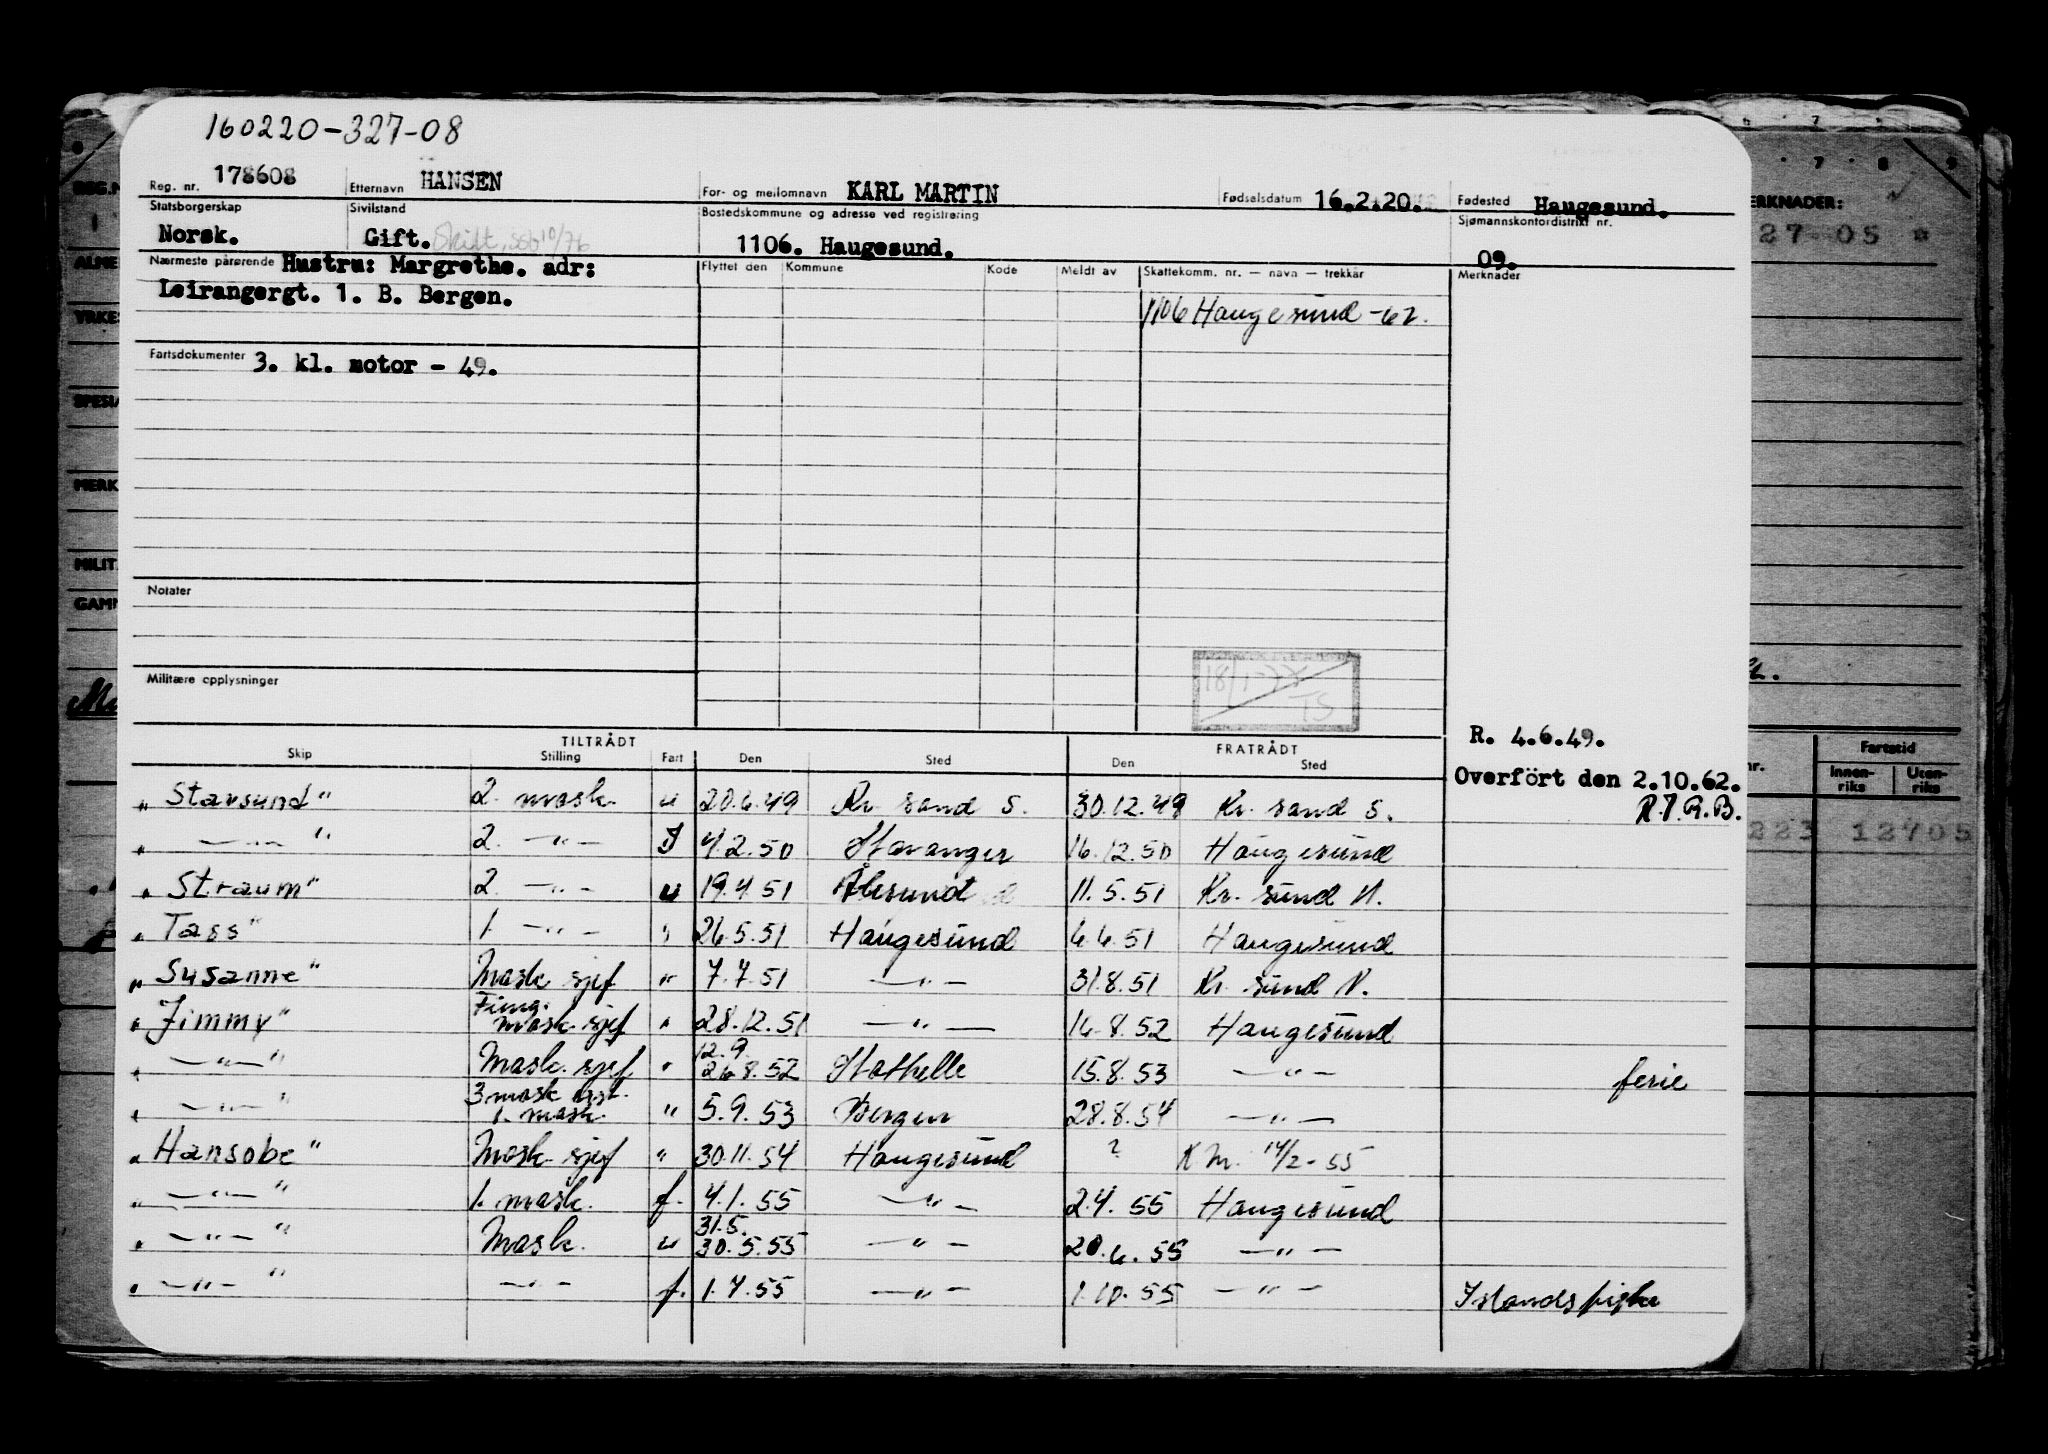 160220-327-08
Reg. nr. 178608 Etternavn HANSEN For- og mellomnavn KARL MARTIN Fødselsdatum 16.2.20. Fødested Haugesund.
Statsborgerskap Norsk. Sivilstand Gift. Skilt, Bostedskommune og adresse ved registrering 1106. Haugesund. Sjømannskontordistrikt nr. 09.
Nærmeste pårørende Hustru: Margrethe. adr: Flyttet den Kommune Kode Meldt av Skattekomm. nr. — navn — trekkår Merknader
Leirangergt. 1. B. Bergen. 1106 Haugesund -62.
Fartsdokumenter 3. kl. motor - 49.
Notater
Militære opplysninger
TS
R. 4.6.49.
Overført den 2.10.62.
TILTRÅDT FRATRÅDT
Skip Stilling Fart Den Sted Den Sted
„ Starsund" 2. mask. u 20.6.49 Kr. sand S. 30.12.49 Kr. sand S.
„ —„— " 2. —„— 4.2.50 Stavanger 16.12.50 Haugesund
„ Straum" 2. —„— u 19.4.51 Ålesund 11.5.51 Kr. sund N.
„ Tass" 1. —„— " 26.5.51 Haugesund 6.6.51 Haugesund
„ Susanne" Mask sjef " 7.7.51 —„— 31.8.51 Kr. sund N.
„ Jimmy" Fung. mask. sjef " 28.12.51 —„— 16.8.52 Haugesund
„ —„— " Mask. sjef " 12.9. 26.8.52 Stathelle 15.8.53 —„— ferie
„ —„— " 3 mask asst. 1. mask. " 5.9.53 Bergen 28.8.54 —„—
„ Hansobe" Mask sjef " 30.11.54 Haugesund ? K M. 14/2-55
„ —„— " 1. mask. f. 4.1.55 —„— 2.4.55 Haugesund
„ —„— " Mask. u 31.5. 30.5.55 —„— 20.6.55 —„—
„ —„— " —„— f. 1.7.55 —„— 1.10.55 —„— Islandsfiske
MERKNADER:
27-05
Fartstid
Innenriks Utenriks
223 12705